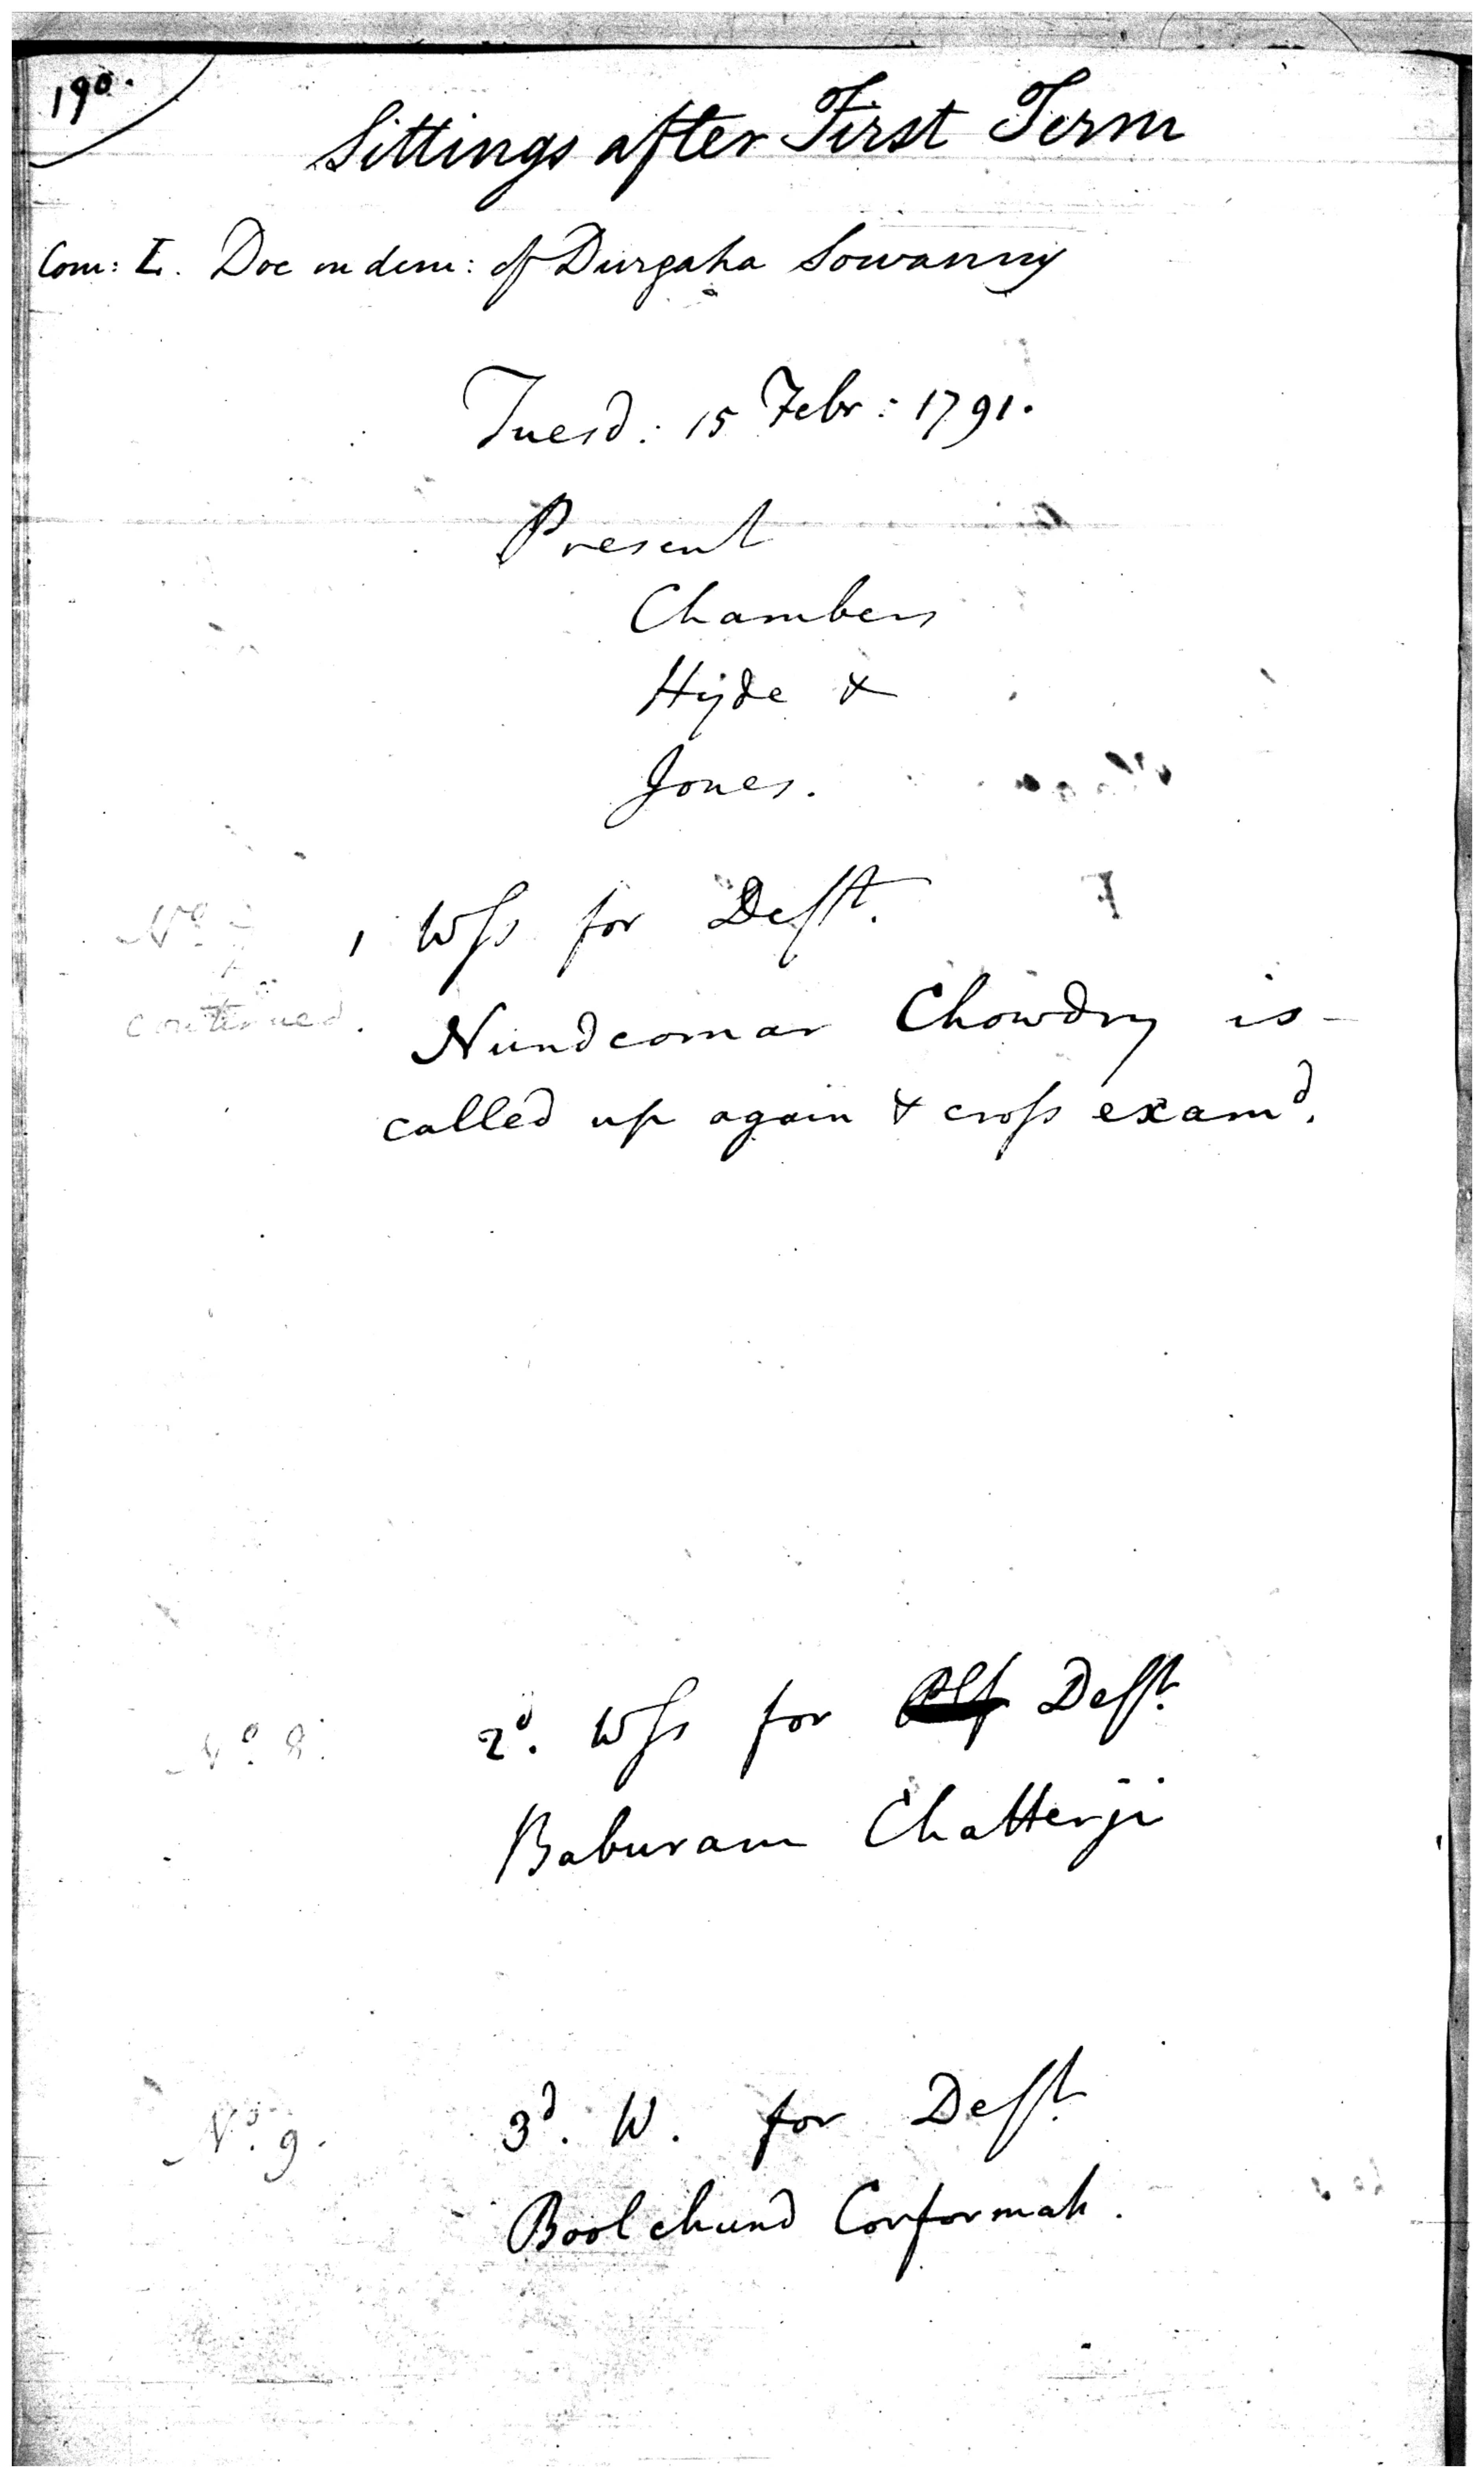 190.
Sittings after First Term
Com: L. Doe on dem: of Durgaha Sowanny
Tuesd: 15 Febr: 1791.
Present
Chambers
Hyde &
Jones.
1 Wss for Deft.
No 7
continued.
Nundcomar Chowdry is
called up again & cross examd.
No. 8.
2d. Wss for Plf Deft
Baburam Chatterji
No. 9.
3d. W. for Deft
Boolchund Corformah.